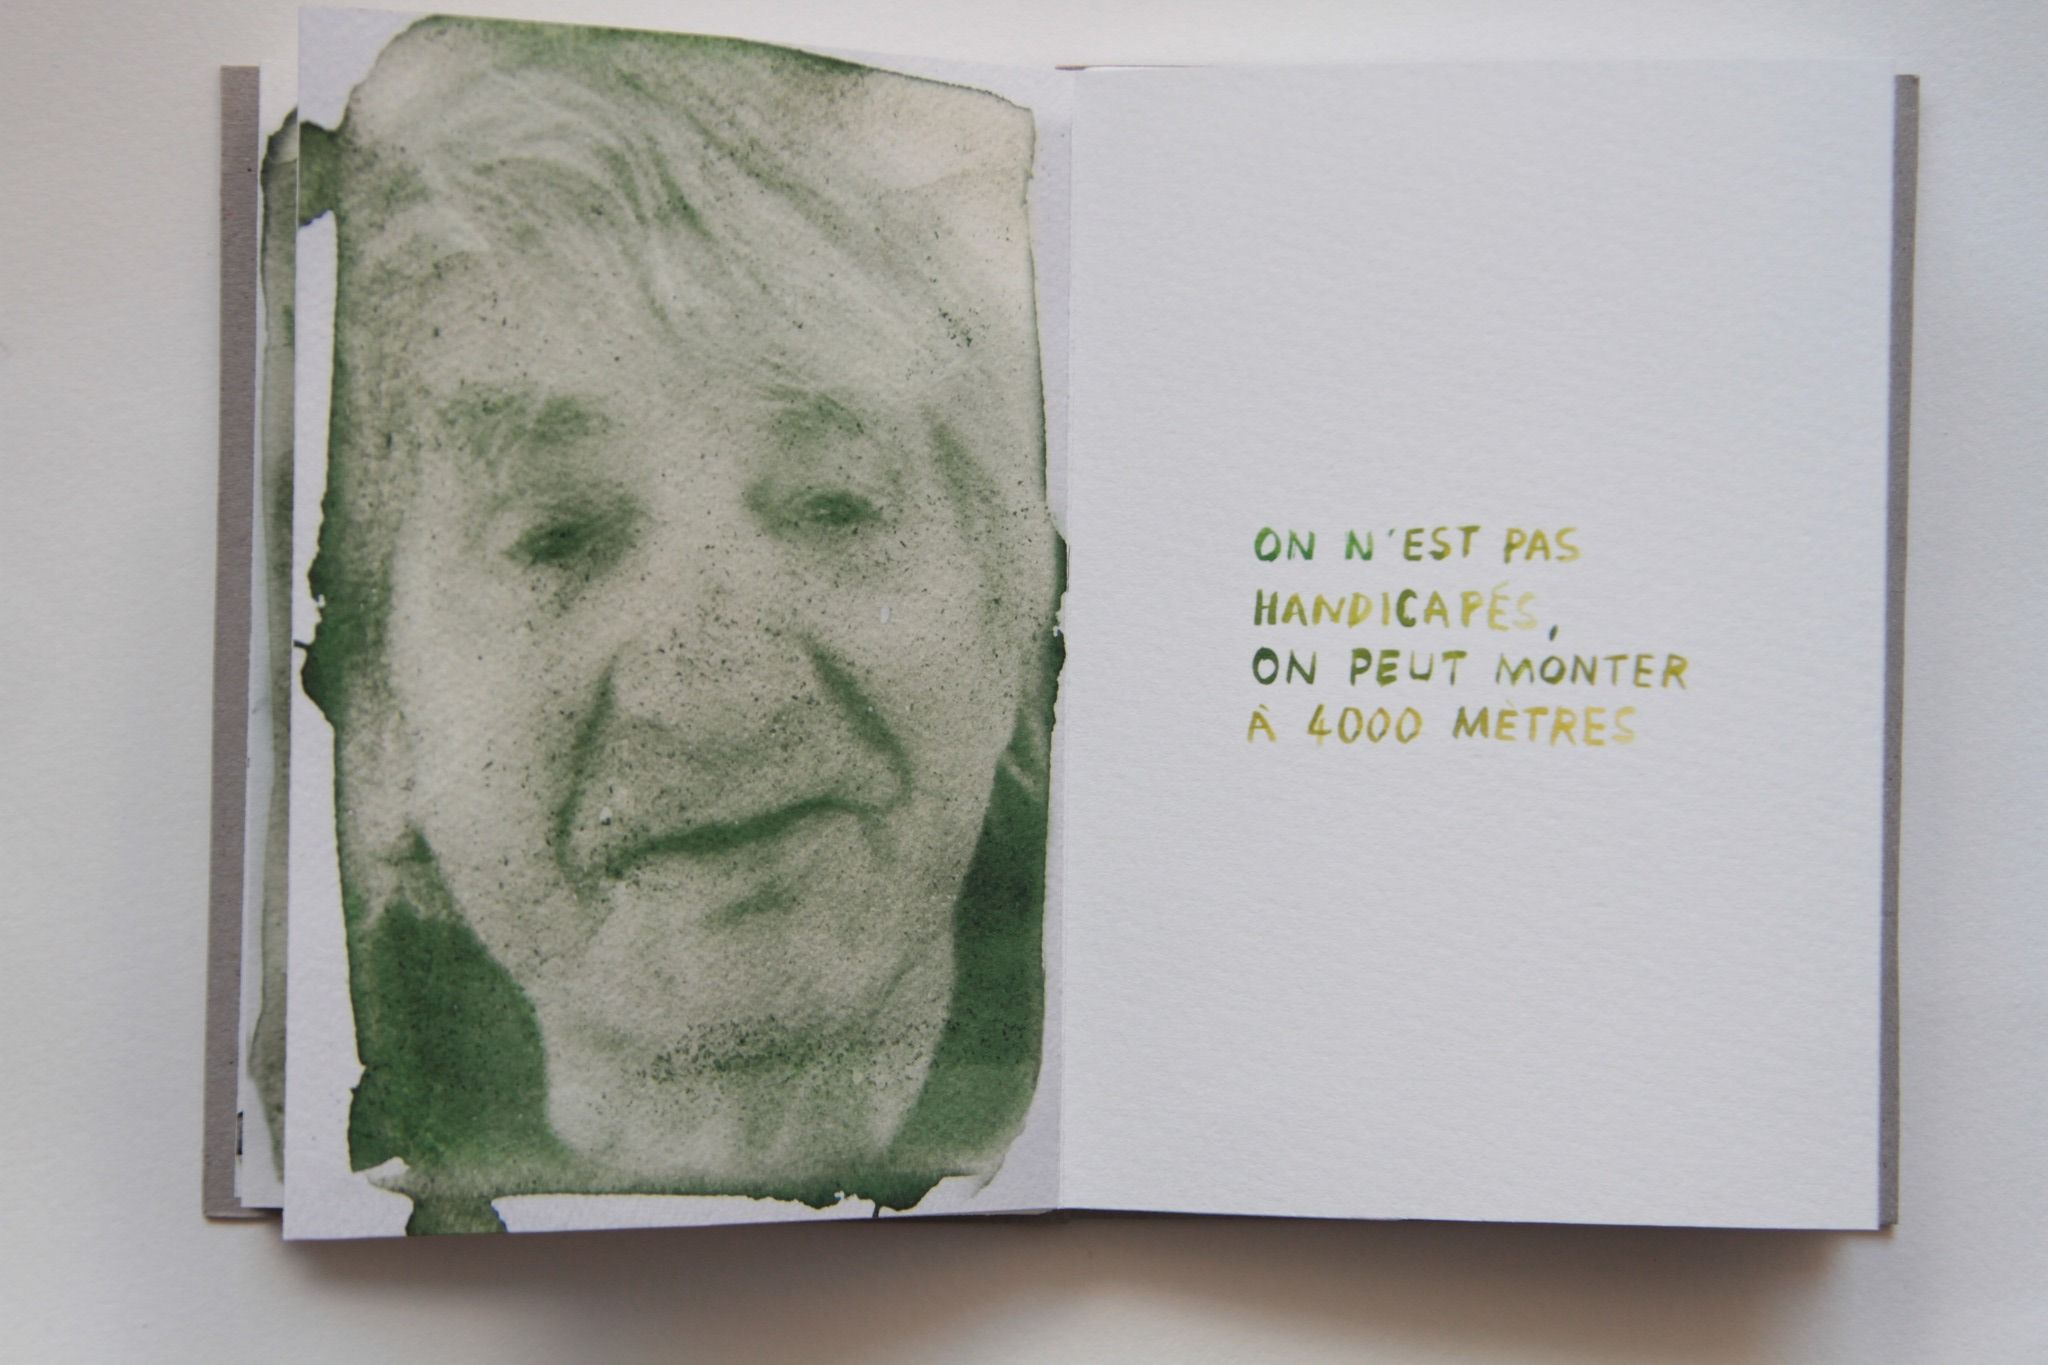 ON N'EST PAS
HANDICAPÉS,
ON PEUT MONTER
À 4000 MÈTRES